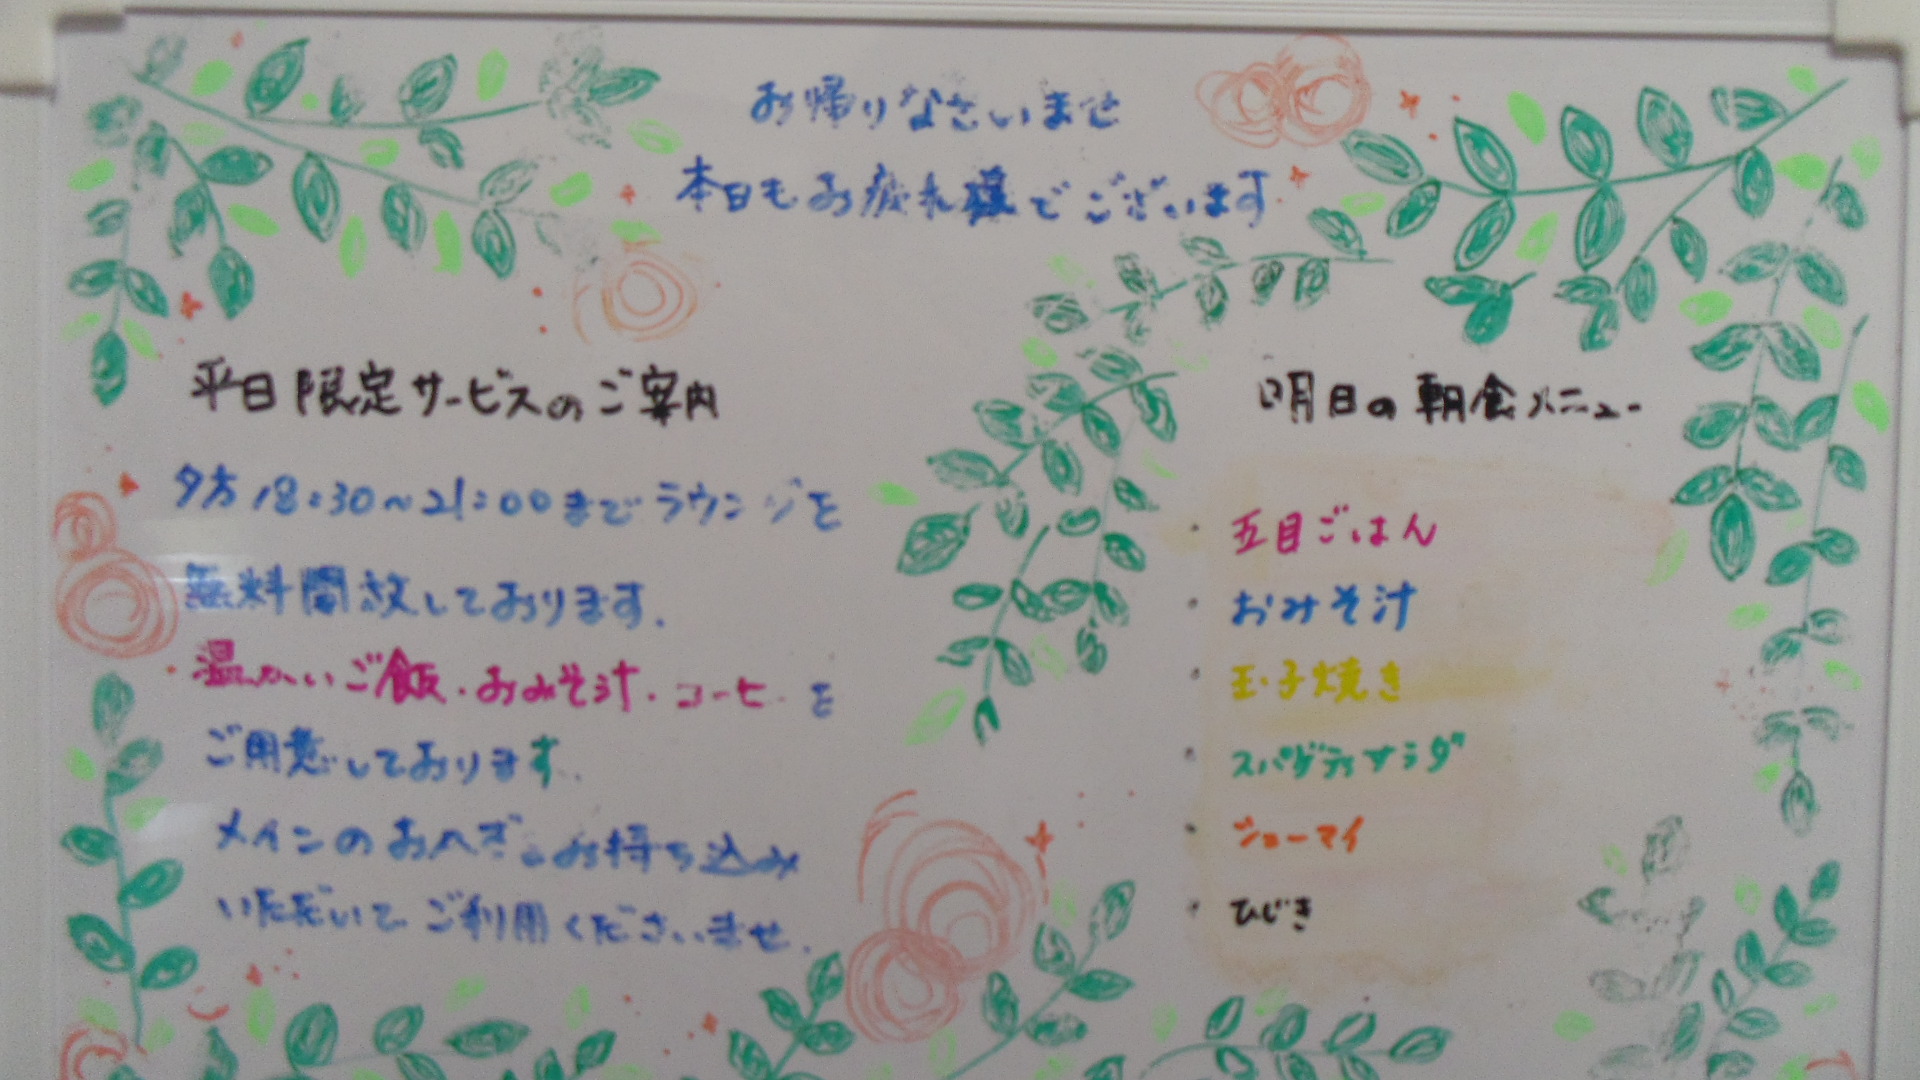 お帰りなさいませ
本日もお疲れ様でございます
平日限定サービスのご案内
夕方18:30~21:00までラウンジを
無料開放しております.
温かいご飯・おみそ汁・コーヒーを
ご用意しております.
メインのおかずをお持ち込み
いただいてご利用くださいませ.
明日の朝食メニュー
・五目ごはん
・おみそ汁
・玉子焼き
・スパゲティサラダ
・シューマイ
・ひじき